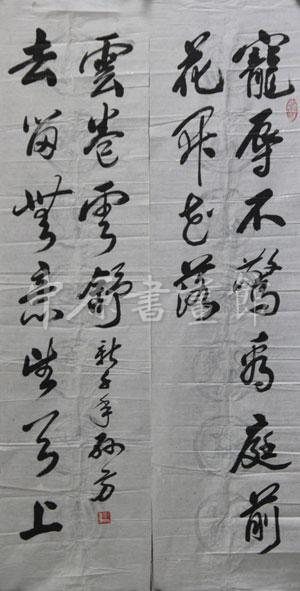 寵辱不驚看庭前
花開花落
去留無意望天上
雲卷雲舒
新千年孙方